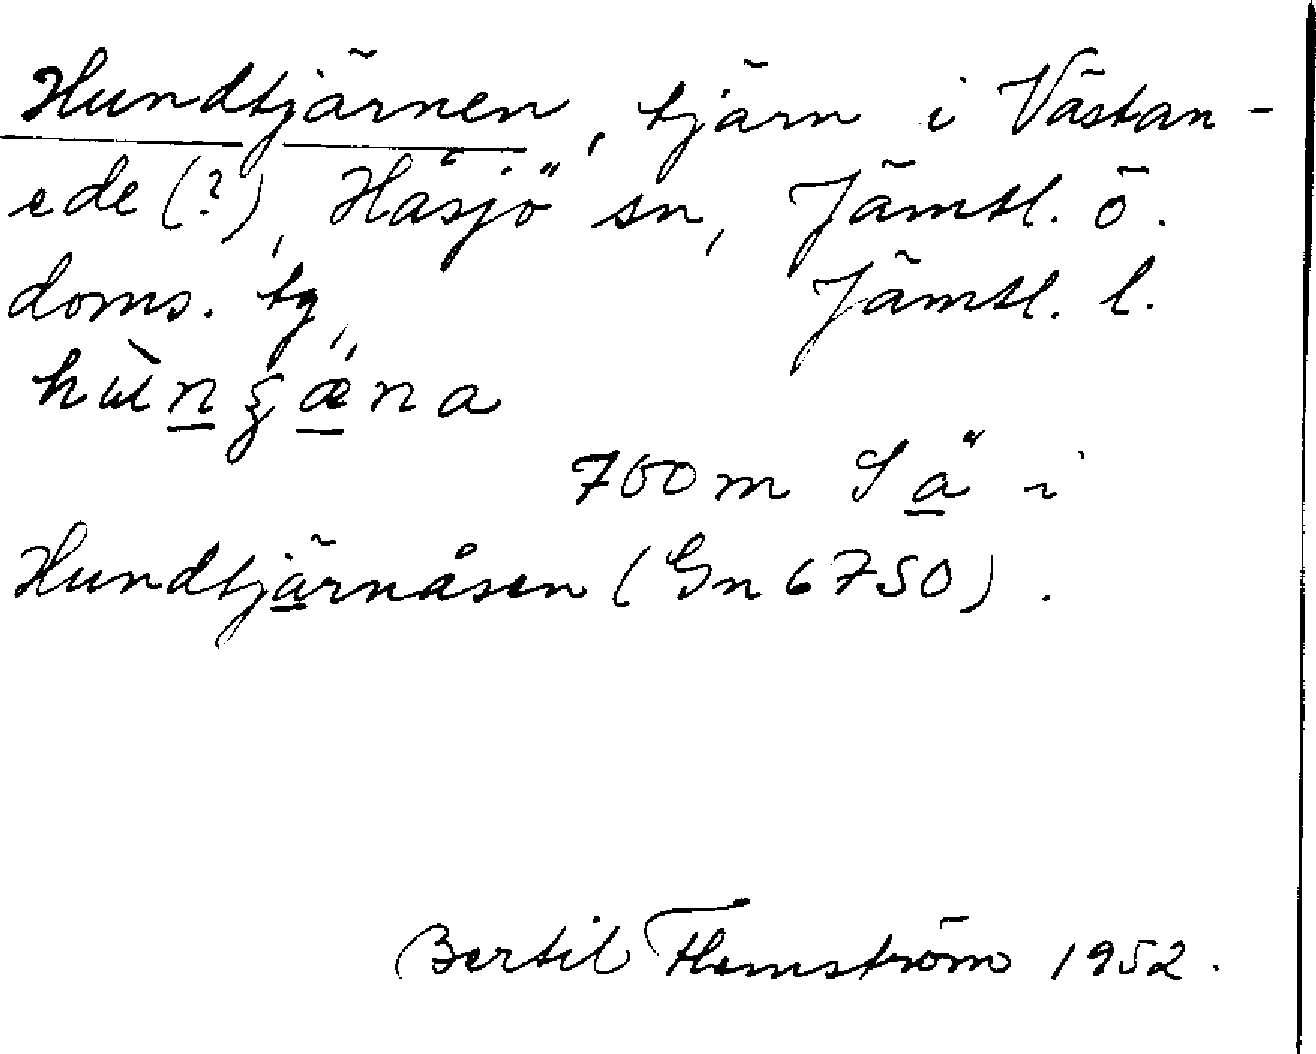 Hundtjärnen, tjärn i Västan-
ede (?), Håsjö sn, Jämtl. ö.
doms. tg, Jämtl. l.
700 m SÄ i
Hundtjärnåsen (Gn 6750).
Bertil Flemström 1952.